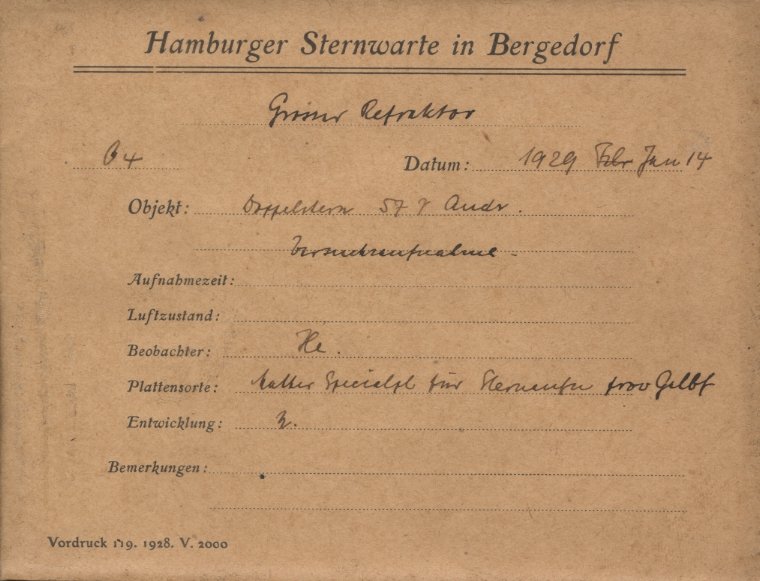 Hamburger Sternwarte in Bergedorf
Grosser Refraktor
Datum: 1929 Febr Jan 14
Objekt: Doppelstern 57 γ Andr.
Versuchsaufnahme
Aufnahmezeit:
Luftzustand:
Beobachter: He.
Plattensorte: Specialpl für Sternaufn Gelbf
Entwicklung:
Bemerkungen:
Vordruck 19. 1928. V. 2000